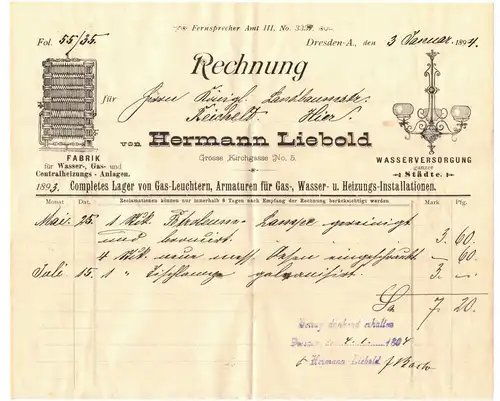 Fernsprecher Amt III. No. 3339.
Fol. 55/35.
Dresden-A., den 3 Januar 1894.
Rechnung
für Herrn Königl. Landbaumstr.
Reichelt Hier
von Hermann Liebold
Grosse Kirchgasse No. 5.
FABRIK
für Wasser-, Gas- und
Centralheizungs-Anlagen.
WASSERVERSORGUNG
ganzer
Städte.
1893. Completes Lager von Gas-Leuchtern, Armaturen für Gas-, Wasser- u. Heizungs-Installationen.
Monat Dat. Reclamationen können nur innerhalb 8 Tagen nach Empfang der Rechnung berücksichtigt werden Mark Pfg.
Mai 25. 1 Stk. Lampe gereinigt
und 3. 60.
4 Stk. neue Ösen eingeschraubt — 60.
Juli 15. 1 Tischlampe 3. —
Sa 7. 20.
Betrag dankend erhalten
Dresden 4. 1. 1894
Hermann Liebold